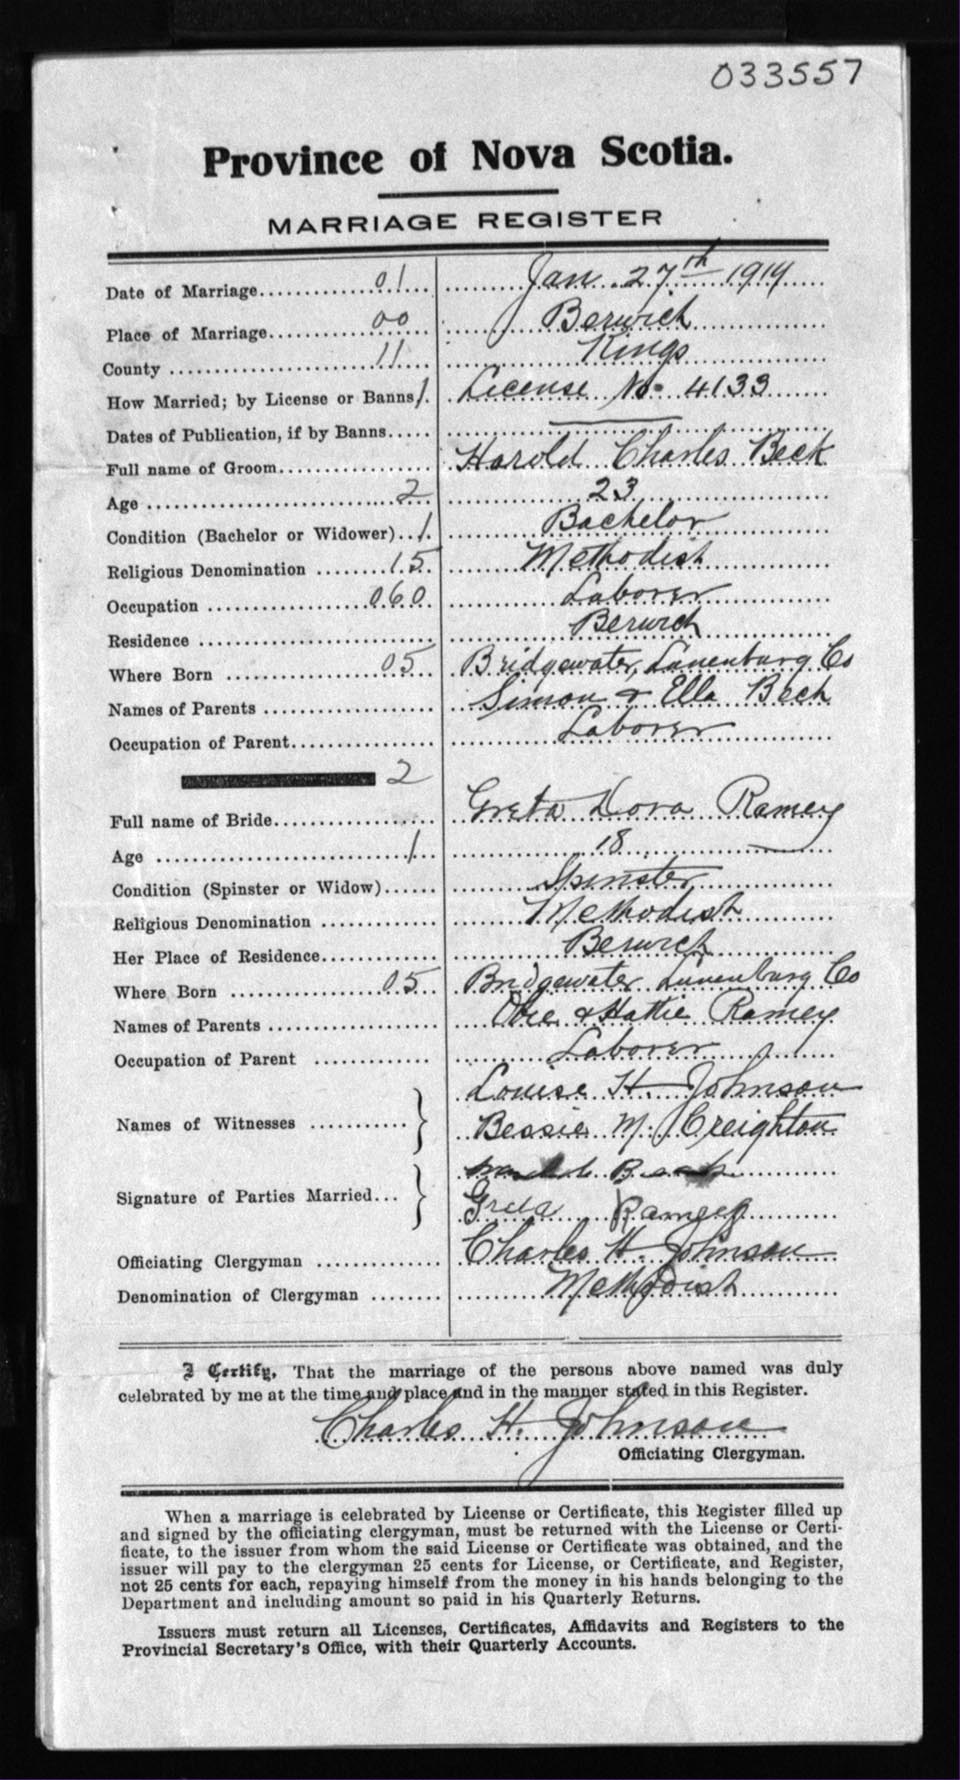 033557
Province of Nova Scotia.
MARRIAGE REGISTER
Date of Marriage 01 Jan 27th 1914
Place of Marriage 00 Berwick
County 11 Kings
How Married; by License or Banns 1 License No 4133
Dates of Publication, if by Banns
Full name of Groom Harold Charles Beck
Age 2 23
Condition (Bachelor or Widower) 1 Bachelor
Religious Denomination 15 Methodist
Occupation 060 Laborer
Residence Berwick
Where Born 05 Bridgewater, Lunenburg Co
Names of Parents Simon & Ella Beck
Occupation of Parent Laborer
2
Full name of Bride Greta Dora Ramey
Age 1 18
Condition (Spinster or Widow) Spinster
Religious Denomination Methodist
Her Place of Residence Berwick
Where Born 05 Bridgewater Lunenburg Co
Names of Parents Obie & Hattie Ramey
Occupation of Parent Laborer
Louise H. Johnson
Names of Witnesses Bessie M. Creighton
Beck
Signature of Parties Married Greta Ramey
Officiating Clergyman Charles H. Johnson
Denomination of Clergyman Methodist
I Certify, That the marriage of the persons above named was duly
celebrated by me at the time and place and in the manner stated in this Register.
Charles H. Johnson
Officiating Clergyman.
When a marriage is celebrated by License or Certificate, this Register filled up
and signed by the officiating clergyman, must be returned with the License or Certi-
ficate, to the issuer from whom the said License or Certificate was obtained, and the
issuer will pay to the clergyman 25 cents for License, or Certificate, and Register,
not 25 cents for each, repaying himself from the money in his hands belonging to the
Department and including amount so paid in his Quarterly Returns.
Issuers must return all Licenses, Certificates, Affidavits and Registers to the
Provincial Secretary's Office, with their Quarterly Accounts.